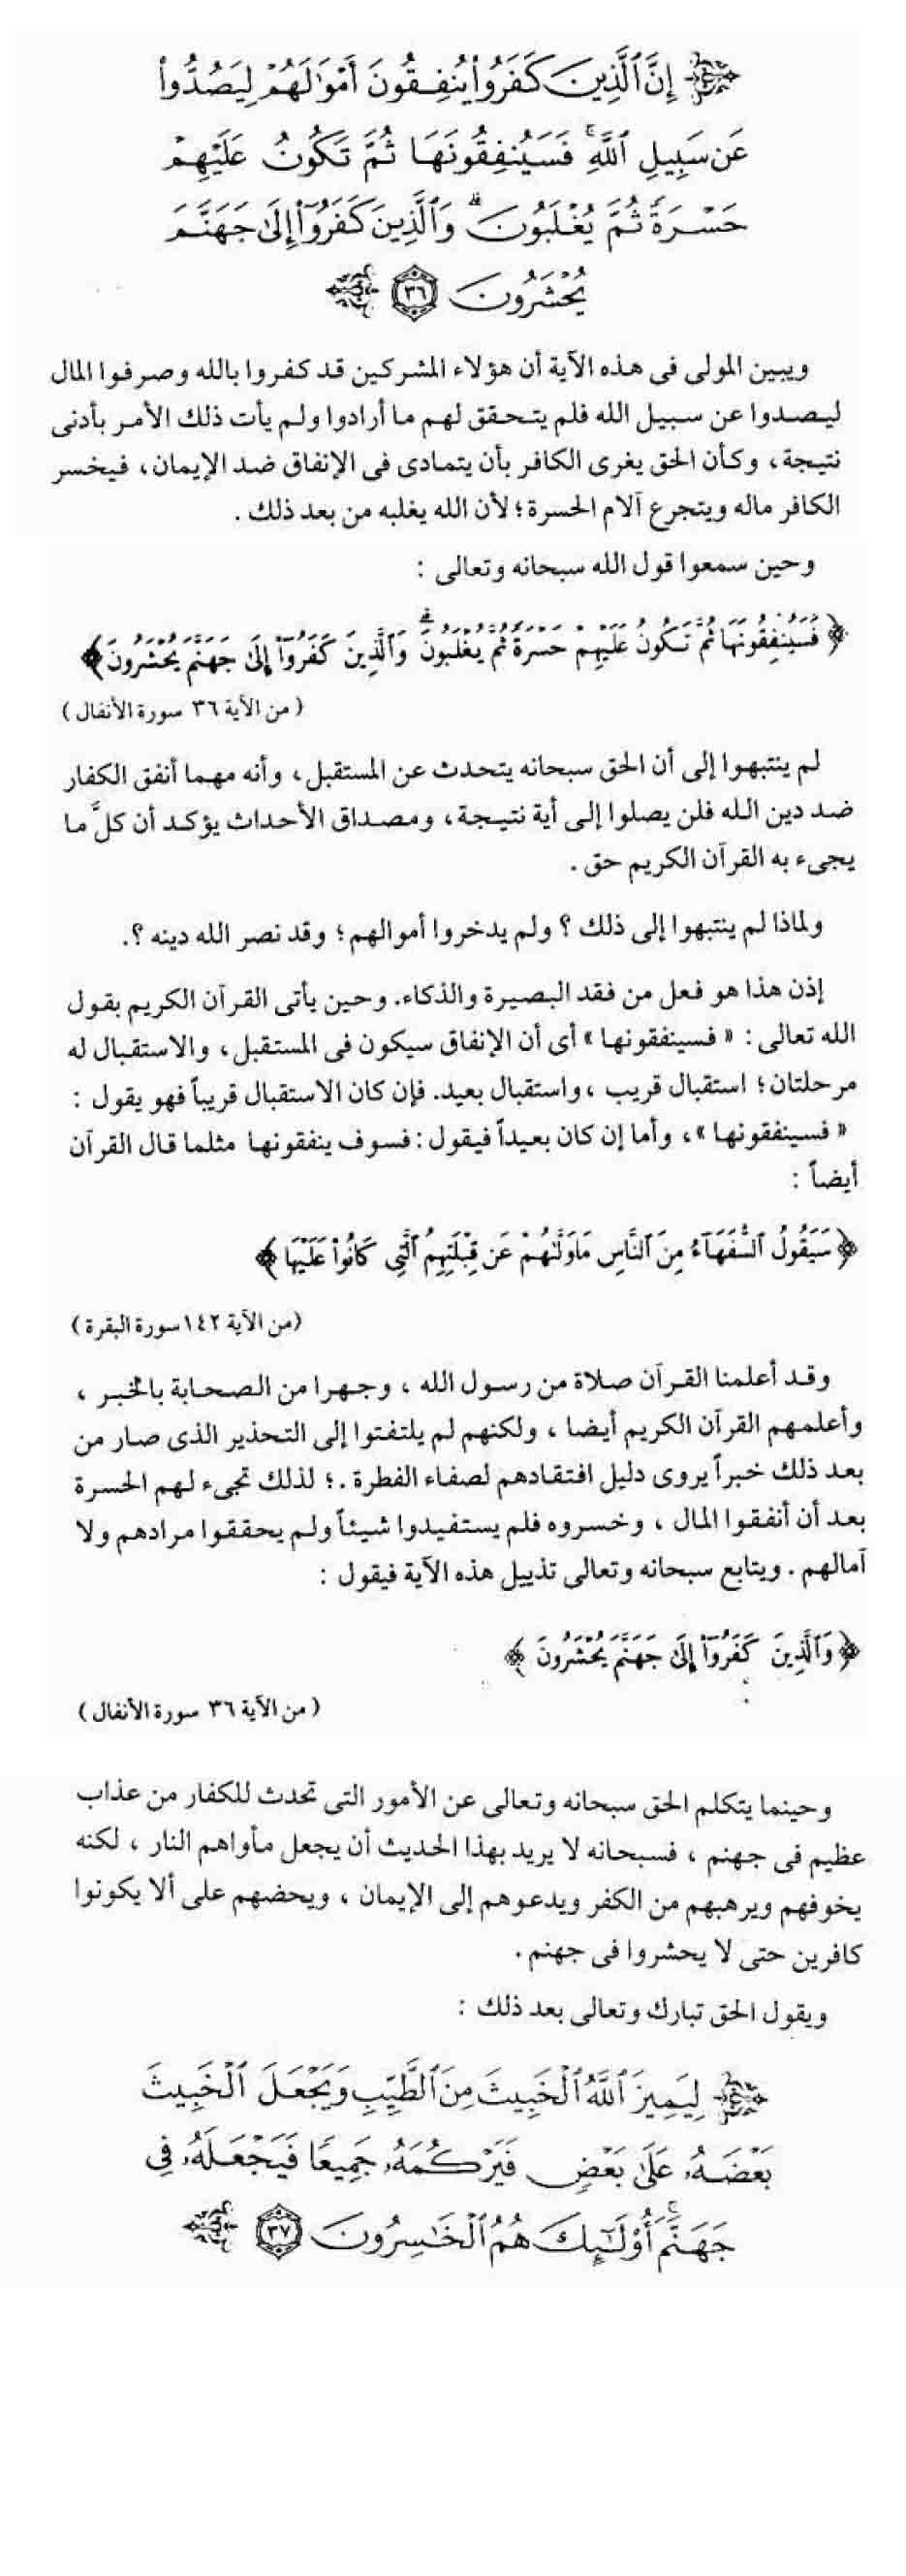 إِنَّ ٱلَّذِينَ كَفَرُوا۟ يُنفِقُونَ أَمْوَٰلَهُمْ لِيَصُدُّوا۟
عَن سَبِيلِ ٱللَّهِ ۚ فَسَيُنفِقُونَهَا ثُمَّ تَكُونُ عَلَيْهِمْ
حَسْرَةً ثُمَّ يُغْلَبُونَ ۗ وَٱلَّذِينَ كَفَرُوٓا۟ إِلَىٰ جَهَنَّمَ
يُحْشَرُونَ ٣٦
ويبين المولى فى هذه الآية أن هؤلاء المشركين قد كفروا بالله وصرفوا المال
ليصدوا عن سبيل الله فلم يتحقق لهم ما أرادوا ولم يأت ذلك الأمر بأدنى
نتيجة، وكأن الحق يغرى الكافر بأن يتمادى فى الإنفاق ضد الإيمان، فيخسر
الكافر ماله ويتجرع آلام الحسرة؛ لأن الله يغلبه من بعد ذلك .
وحين سمعوا قول الله سبحانه وتعالى :
﴿ فَسَيُنفِقُونَهَا ثُمَّ تَكُونُ عَلَيْهِمْ حَسْرَةً ثُمَّ يُغْلَبُونَ ۗ وَٱلَّذِينَ كَفَرُوٓا۟ إِلَىٰ جَهَنَّمَ يُحْشَرُونَ ﴾
( من الآية ٣٦ سورة الأنفال )
لم ينتبهوا إلى أن الحق سبحانه يتحدث عن المستقبل، وأنه مهما أنفق الكفار
ضد دين الله فلن يصلوا إلى أية نتيجة، ومصداق الأحداث يؤكد أن كلَّ ما
يجىء به القرآن الكريم حق .
ولماذا لم ينتبهوا إلى ذلك ؟ ولم يدخروا أموالهم؛ وقد نصر الله دينه ؟.
إذن هذا هو فعل من فقد البصيرة والذكاء. وحين يأتى القرآن الكريم بقول
الله تعالى : « فسينفقونها » أى أن الإنفاق سيكون فى المستقبل، والاستقبال له
مرحلتان؛ استقبال قريب ، واستقبال بعيد. فإن كان الاستقبال قريباً فهو يقول :
« فسينفقونها »، وأما إن كان بعيداً فيقول : فسوف ينفقونها مثلما قال القرآن
أيضاً :
﴿ سَيَقُولُ ٱلسُّفَهَآءُ مِنَ ٱلنَّاسِ مَا وَلَّىٰهُمْ عَن قِبْلَتِهِمُ ٱلَّتِى كَانُوا۟ عَلَيْهَا ﴾
(من الآية ١٤٢ سورة البقرة )
وقد أعلمنا القرآن صلاة من رسول الله ، وجهرا من الصحابة بالخبر ،
وأعلمهم القرآن الكريم أيضا ، ولكنهم لم يلتفتوا إلى التحذير الذى صار من
بعد ذلك خبراً يروى دليل افتقادهم لصفاء الفطرة .؛ لذلك تجىء لهم الحسرة
بعد أن أنفقوا المال ، وخسروه فلم يستفيدوا شيئاً ولم يحققوا مرادهم ولا
آمالهم . ويتابع سبحانه وتعالى تذييل هذه الآية فيقول :
﴿ وَٱلَّذِينَ كَفَرُوٓا۟ إِلَىٰ جَهَنَّمَ يُحْشَرُونَ ﴾
( من الآية ٣٦ سورة الأنفال )
وحينما يتكلم الحق سبحانه وتعالى عن الأمور التى تحدث للكفار من عذاب
عظيم فى جهنم ، فسبحانه لا يريد بهذا الحديث أن يجعل مأواهم النار ، لكنه
يخوفهم ويرهبهم من الكفر ويدعوهم إلى الإيمان ، ويحضهم على ألا يكونوا
كافرين حتى لا يحشروا فى جهنم .
ويقول الحق تبارك وتعالى بعد ذلك :
لِيَمِيزَ ٱللَّهُ ٱلْخَبِيثَ مِنَ ٱلطَّيِّبِ وَيَجْعَلَ ٱلْخَبِيثَ
بَعْضَهُۥ عَلَىٰ بَعْضٍ فَيَرْكُمَهُۥ جَمِيعًا فَيَجْعَلَهُۥ فِى
جَهَنَّمَ ۚ أُو۟لَـٰٓئِكَ هُمُ ٱلْخَـٰسِرُونَ ٣٧